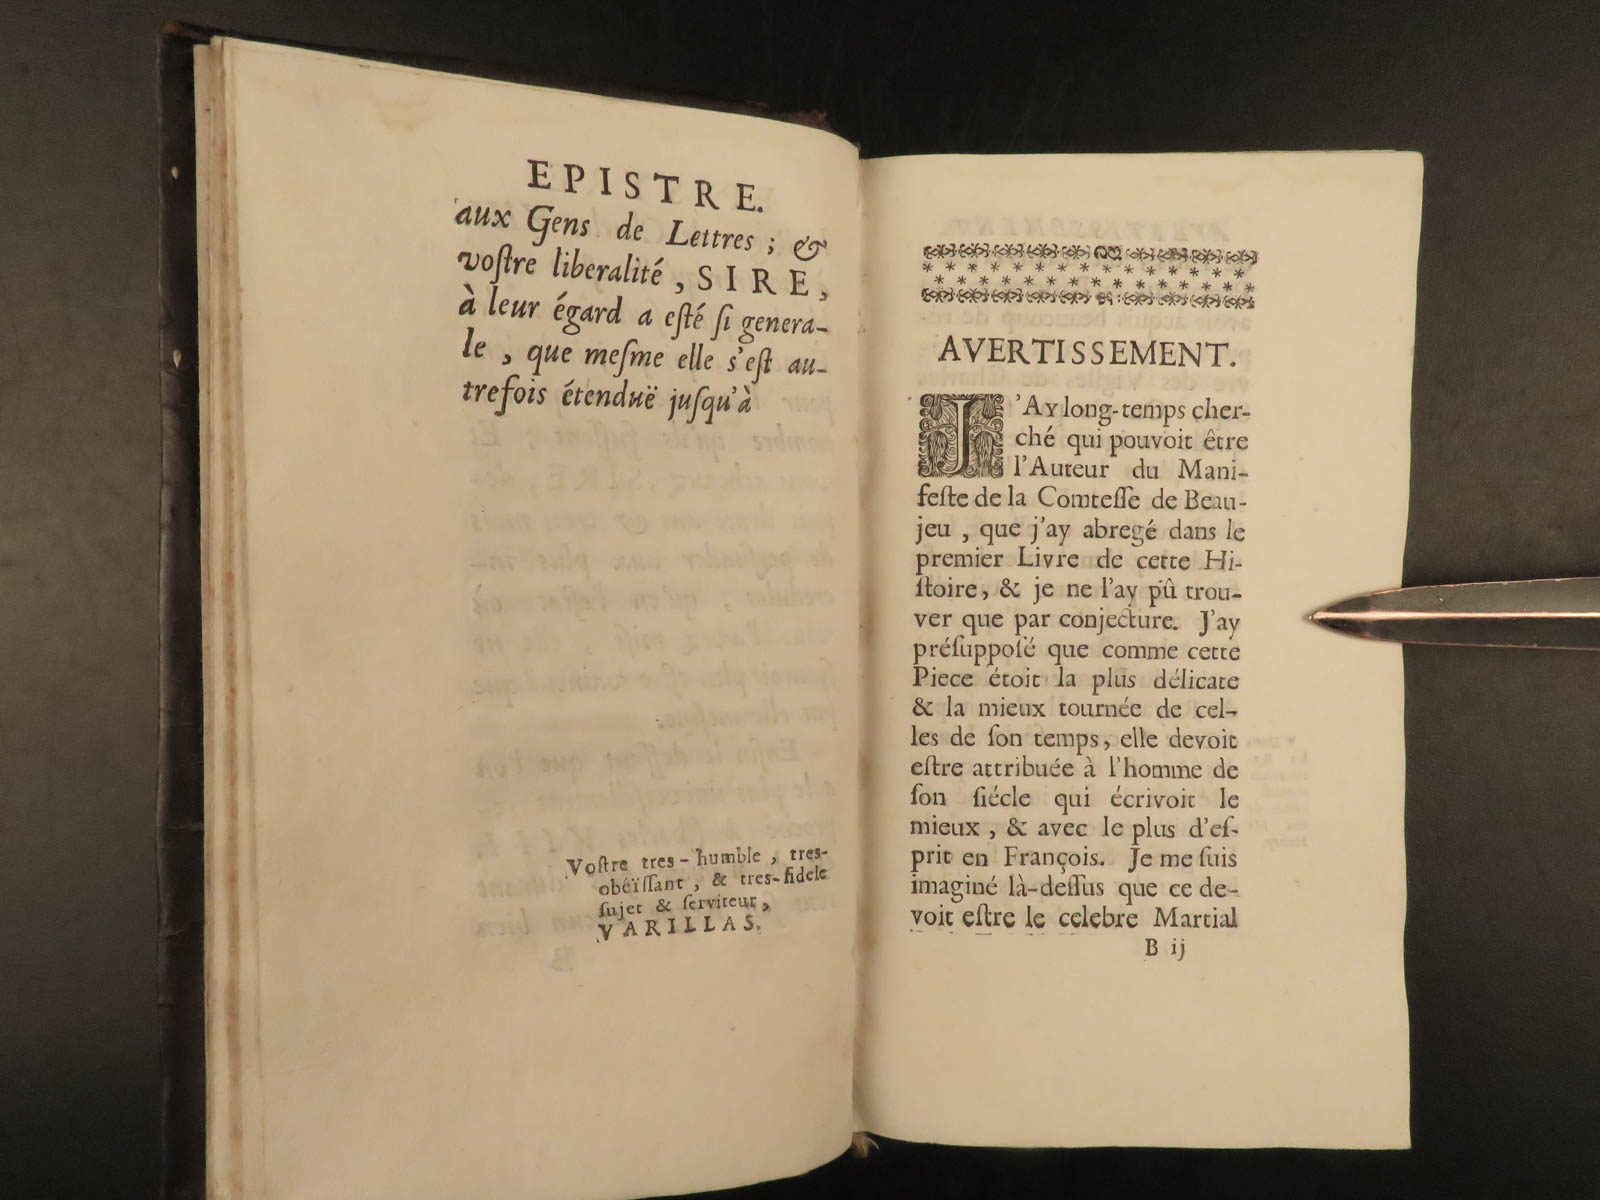 EPISTRE.
aux Gens de Lettres ; &
voſtre liberalité, SIRE,
à leur égard a eſté ſi genera-
le , que meſme elle s'eſt au-
trefois étenduë juſqu'à
Voſtre tres-humble , tres-
obéïſſant , & tres-fidele
ſujet & ſerviteur,
VARILLAS.
AVERTISSEMENT.
J'AY long-temps cher-
ché qui pouvoit être
l'Auteur du Mani-
feſte de la Comteſſe de Beau-
jeu , que j'ay abregé dans le
premier Livre de cette Hi-
ſtoire, & je ne l'ay pû trou-
ver que par conjecture. J'ay
préſuppoſé que comme cette
Piece étoit la plus délicate
& la mieux tournée de cel-
les de ſon temps, elle devoit
eſtre attribuée à l'homme de
ſon ſiécle qui écrivoit le
mieux , & avec le plus d'eſ-
prit en François. Je me ſuis
imaginé là-deſſus que ce de-
voit eſtre le celebre Martial
B ij